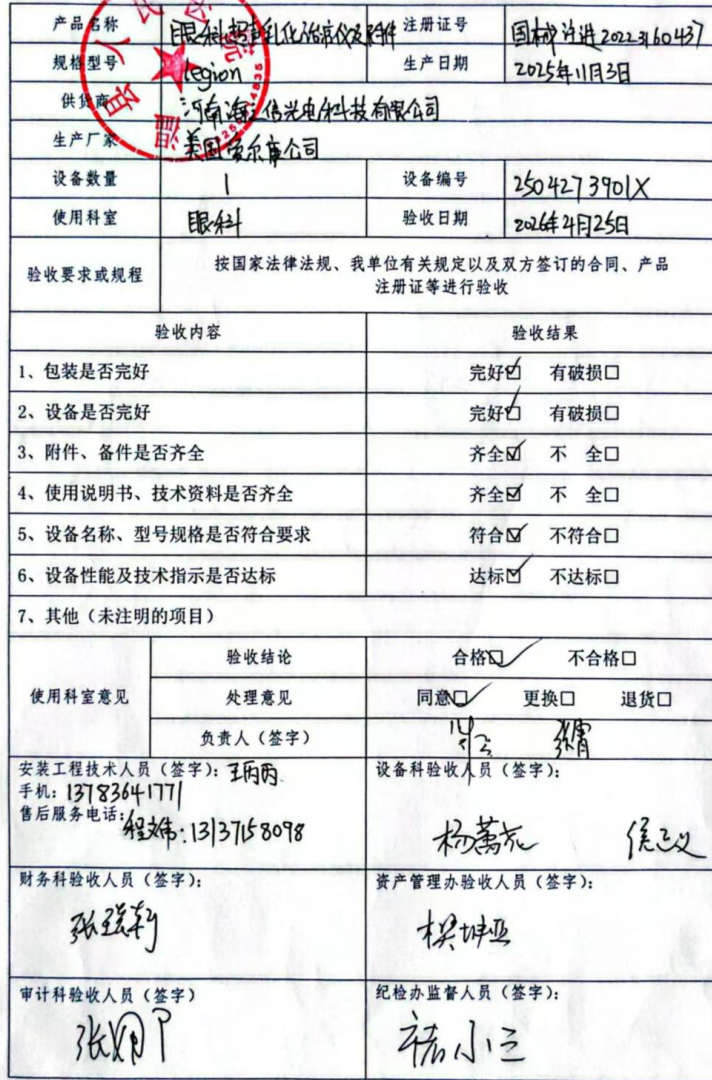 产品名称 眼科超声乳化治疗仪及附件 注册证号 国械注进20223160437
规格型号 Legion 生产日期 2025年11月3日
供货商 河南海之信光电科技有限公司
生产厂家 美国爱尔康公司
设备数量 1 设备编号 2504273901X
使用科室 眼科 验收日期 2026年4月25日
验收要求或规程 按国家法律法规、我单位有关规定以及双方签订的合同、产品
注册证等进行验收
验收内容 验收结果
1、包装是否完好 完好☑ 有破损□
2、设备是否完好 完好☑ 有破损□
3、附件、备件是否齐全 齐全☑ 不 全□
4、使用说明书、技术资料是否齐全 齐全☑ 不 全□
5、设备名称、型号规格是否符合要求 符合☑ 不符合□
6、设备性能及技术指示是否达标 达标☑ 不达标□
7、其他（未注明的项目）
验收结论 合格☑ 不合格□
使用科室意见 处理意见 同意☑ 更换□ 退货□
负责人（签字）
安装工程技术人员（签字）：王丙丙 设备科验收人员（签字）：
手机：13783641771
售后服务电话：程文伟：13137158098
侯正义
财务科验收人员（签字）： 资产管理办验收人员（签字）：
樊坤亚
审计科验收人员（签字） 纪检办监督人员（签字）：